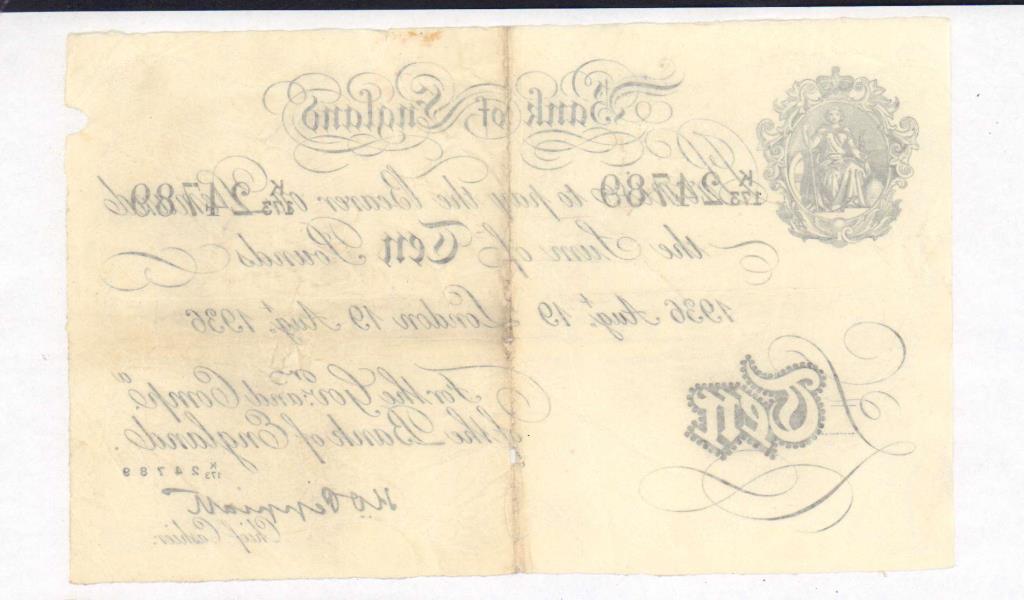 Bank of England
K
173 24789 to pay the Bearer on Demand K
173 24789
the Sum of Ten Pounds
1936 Augt. 19 London 19 Augt. 1936
For the Govr. and Compa.
Ten of the Bank of England.
K
173 24789
K.O. Peppiatt
Chief Cashier.